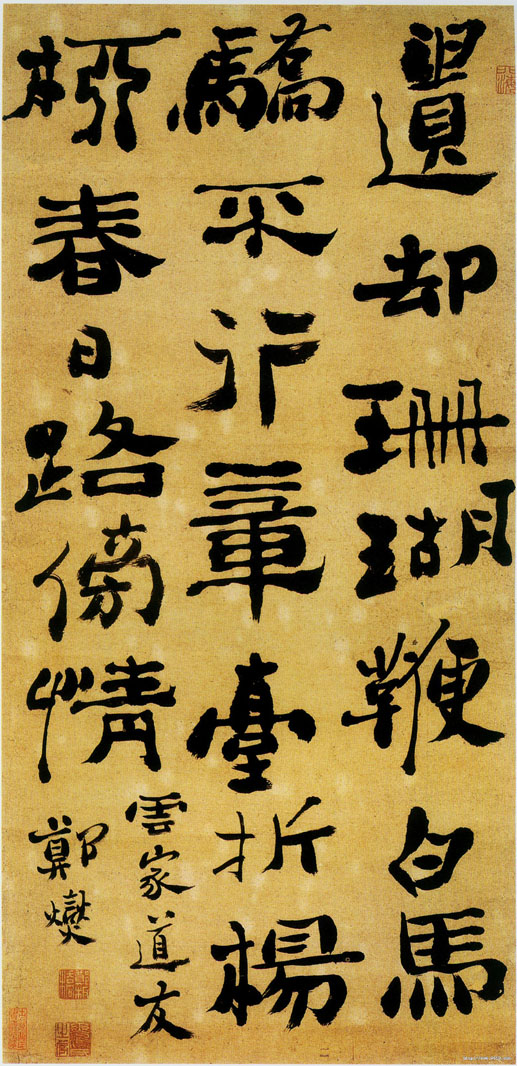 遺却珊瑚鞭白馬
驕不行章臺折楊
桺春日路傍情
雲家道友
鄭燮